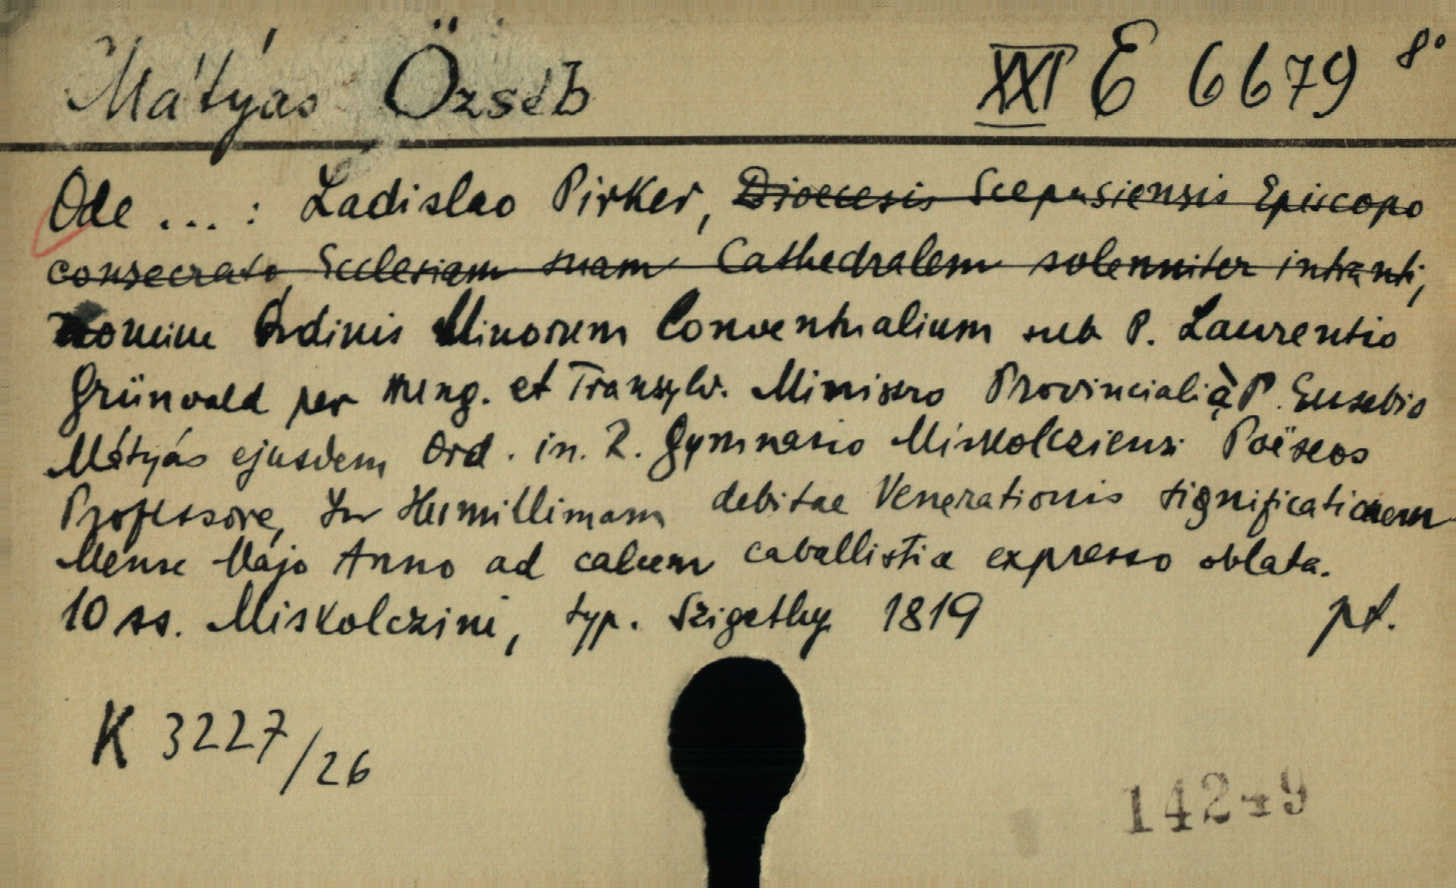 Mátyás Özséb XXI E 6679 8°
Ode ... : Ladislao Pirker, Dioecesis Scepusiensis Episcopo
consecrato, Ecclesiam suam Cathedralem solenniter intranti,
nomine Ordinis Minorum Conventualium sub P. Laurentio
Grünvald per Hung. et Transylv. Ministro Provinciali à P. Eusebio
Mátyás ejusdem Ord. in. R. Gymnasio Miskolcziensi Poëseos
Professore, In Humillimam debitae Venerationis significationem
Mense Majo Anno ad calcem caballistia expresso oblata.
10 ss. Miskolczini, typ. Szigethy 1819 pf.
K 3227/26
14249